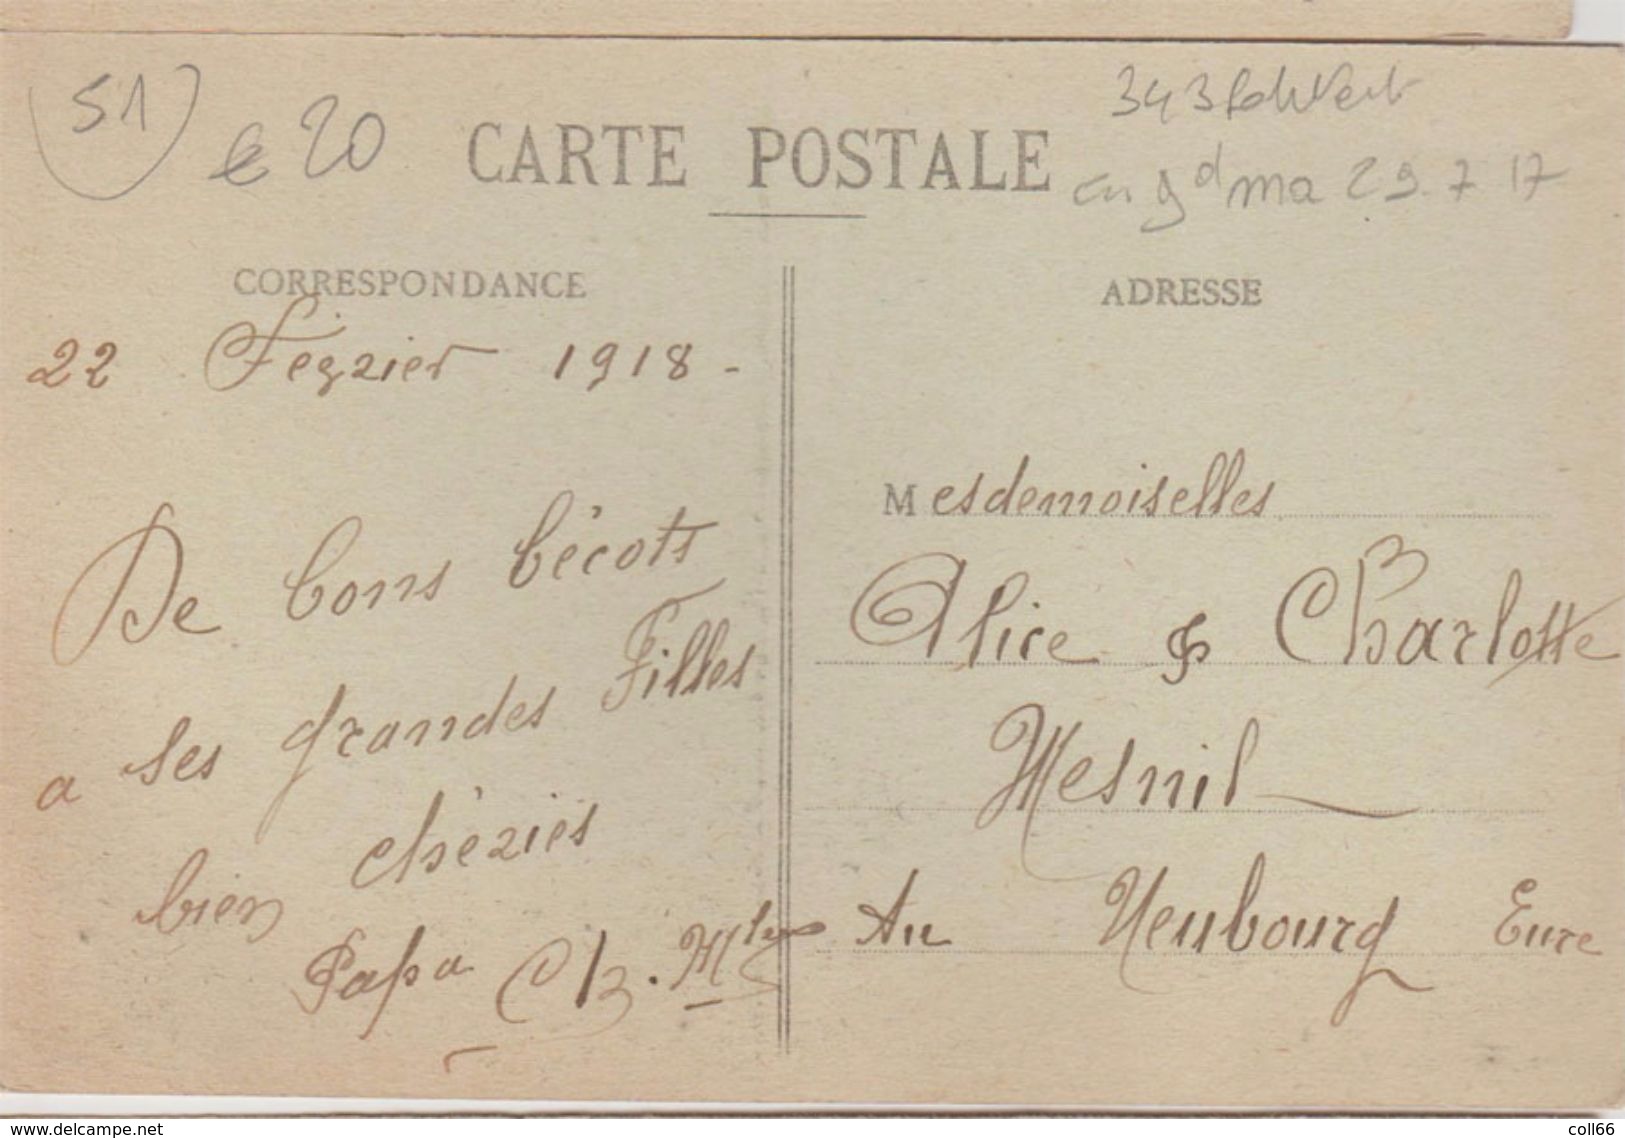 51
20
343
CARTE POSTALE
gd ma 29.7 17
CORRESPONDANCE
ADRESSE
22 Fevrier 1918 -
De bons bécots
a ses grandes Filles
bien chéries
Papa Ch. M
Mesdemoiselles
Alice & Charlotte
Mesnil
Au Neubourg Eure
www.delcampe.net
coll66